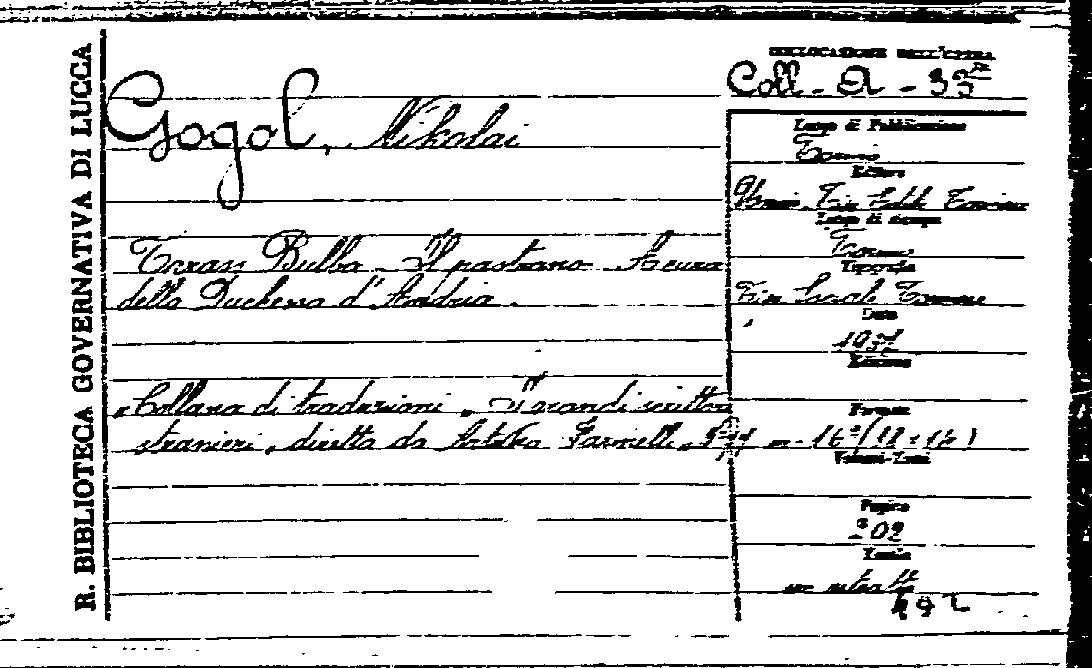 R. BIBLIOTECA GOVERNATIVA DI LUCCA
COLLOCAZIONE DELL'OPERA
Coll. A - 35
Gogol, Nikolai
Luogo di Pubblicazione
Torino
Editore
Tip. Edit. Torinese
Luogo di stampa
Torino
Tipografia
Tip. Sociale Torinese
Data
Taras Bulba - Il pastrano - A cura
della Duchessa d'Andria.
Edizione
"Collana di traduzioni "I grandi scrittori
stranieri, diretta da Arturo Farinelli,
Formato
16º (11 × 16)
Volumi-Tomi
Pagine
202
Tavole
un ritratto